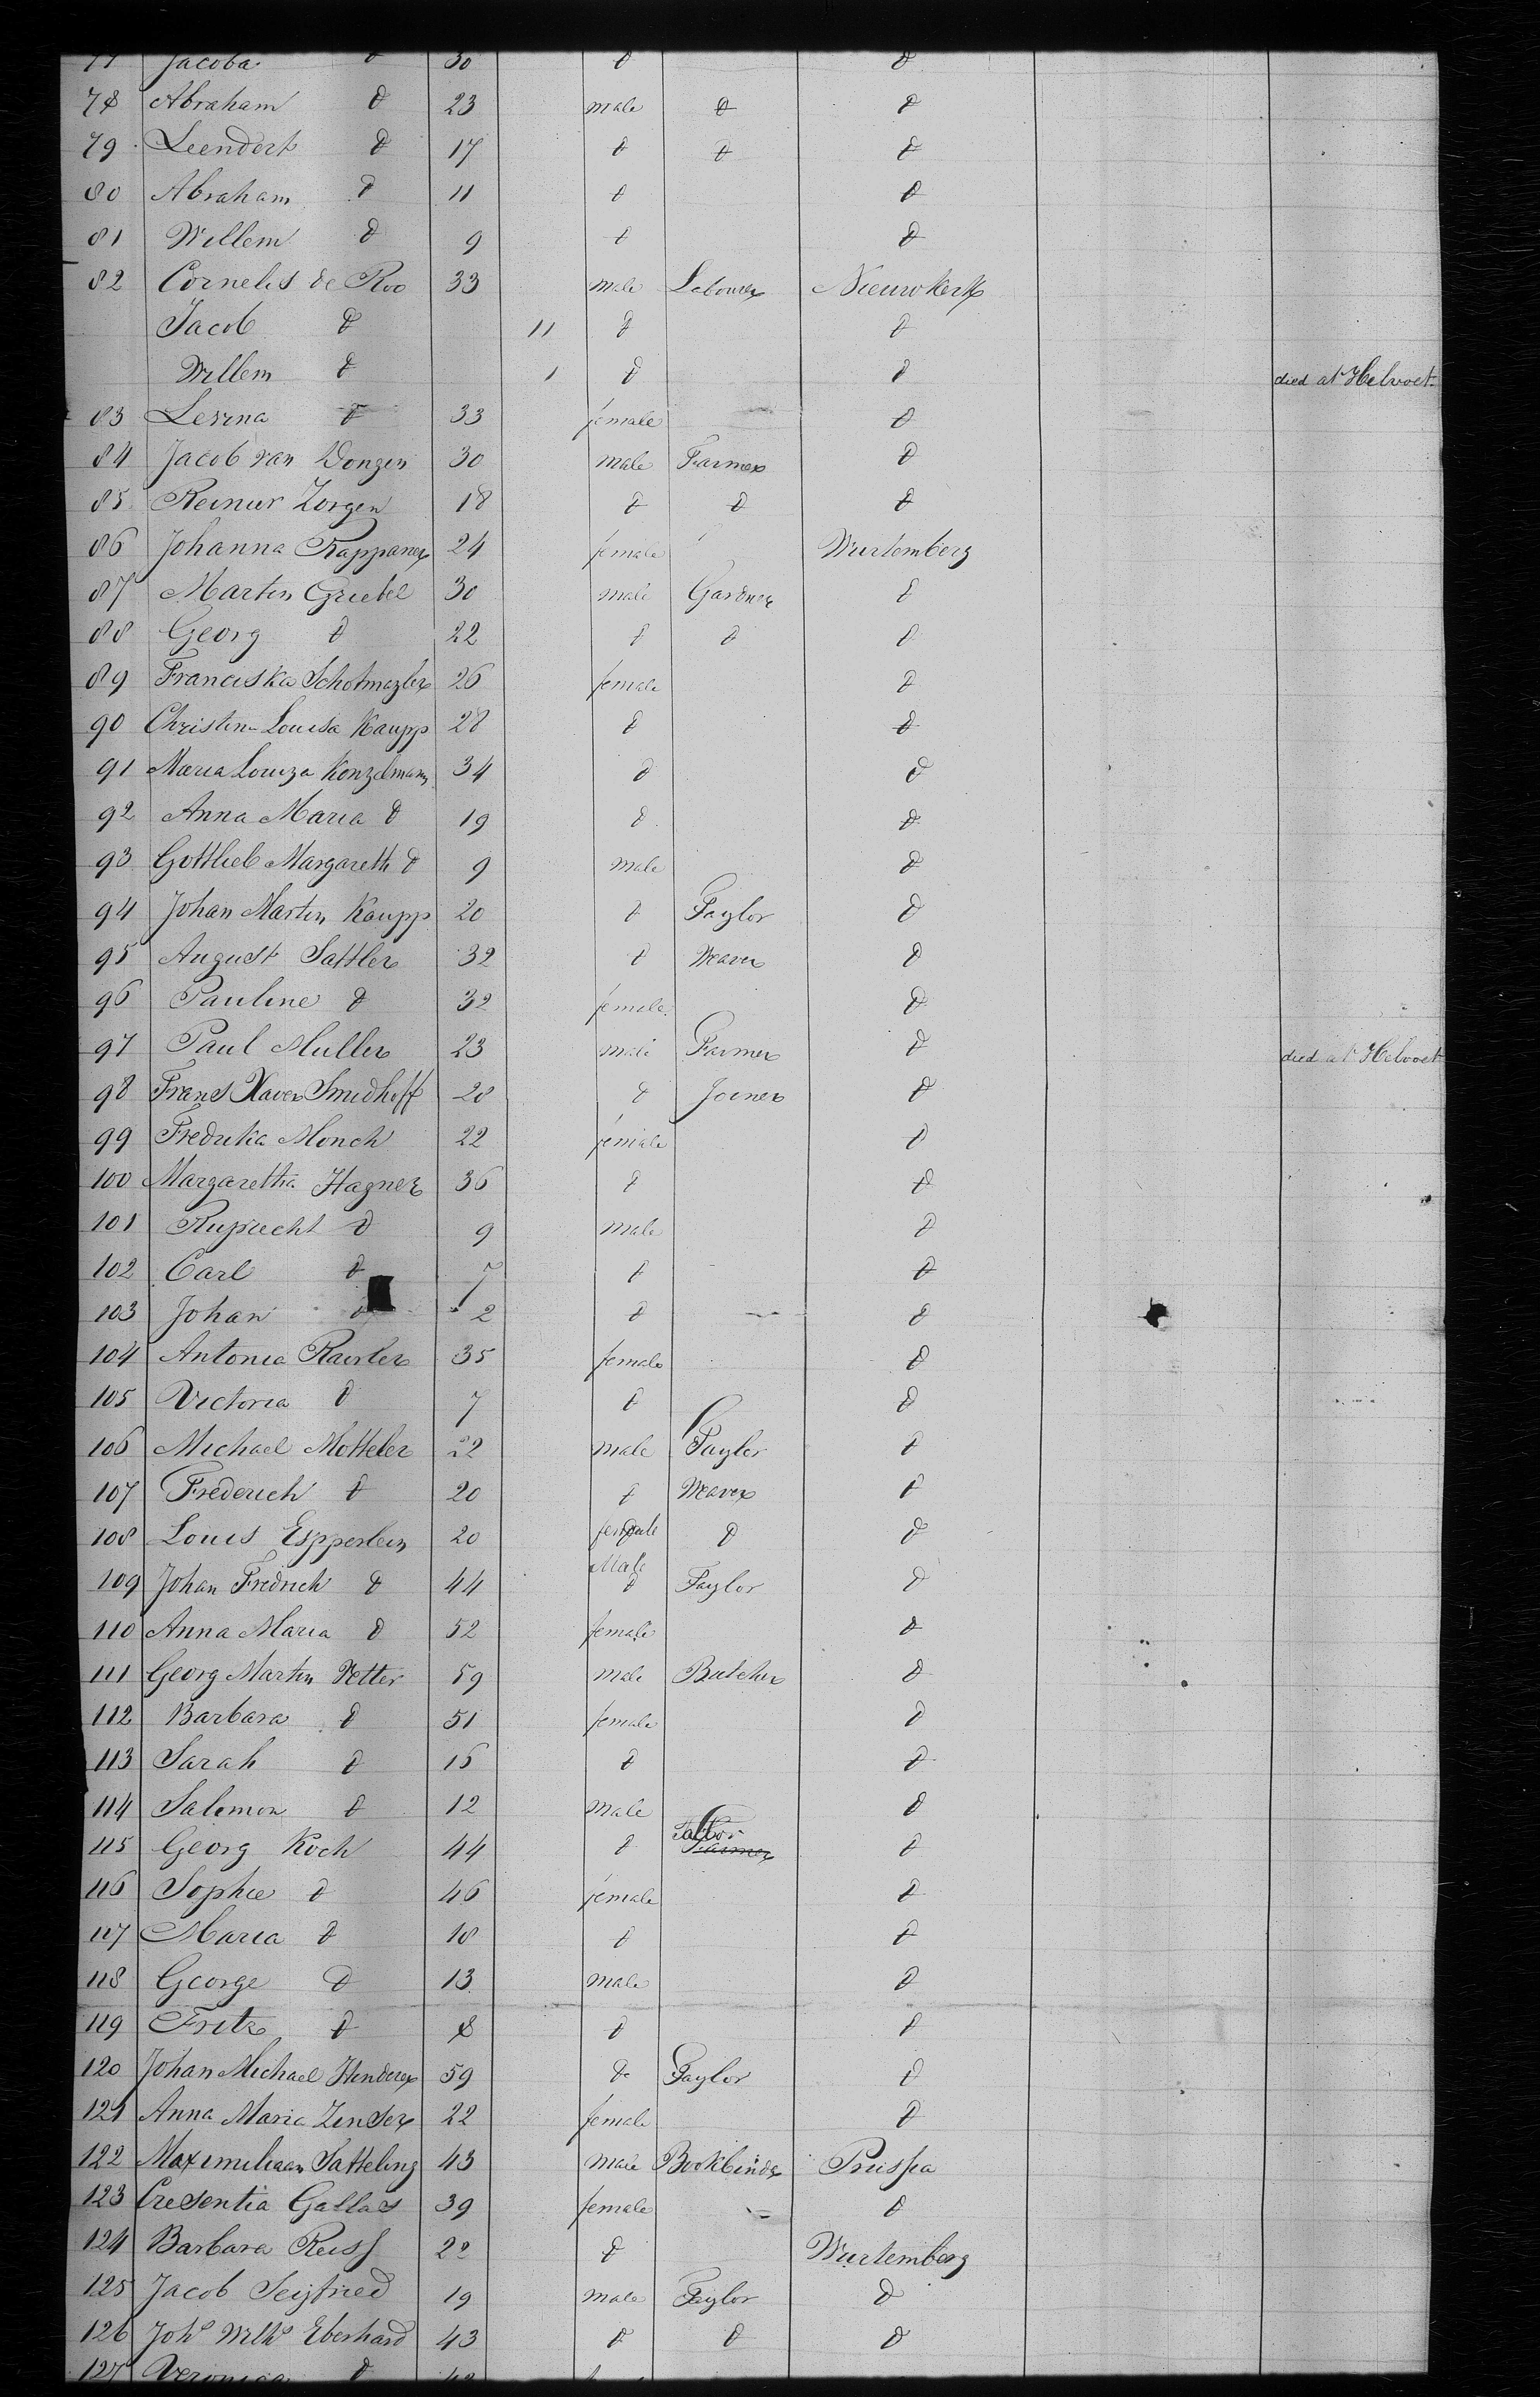 77 Jacoba d 30 d d
78 Abraham d 23 male d d
79 Leendert d 17 d d d
80 Abraham d 11 d d
81 Willem d 9 d d
82 Cornelis de Roo 33 male Labourer Nieuwkerk
Jacob d 11 d d
Willem d 1 d d died at Helvoet
83 Levina d 33 female d
84 Jacob van Dongen 30 male Farmer d
85 Reinier Zorgen 18 d d d
86 Johanna Kappaner 24 female Wurtemberg
87 Martin Griebel 30 male Gardner d
88 Georg d 22 d d d
89 Franciska 26 female d
90 Christin Louisa Kaupp 28 d d
91 Maria Louiza Konzelmann 34 d d
92 Anna Maria d 19 d d
93 Gottlieb Margareth d 9 male d
94 Johan Martin Kaupp 20 d Taylor d
95 August Sattler 32 d Weaver d
96 Pauline d 32 female d
97 Paul Muller 23 male Farmer d died at Helvoet
98 Frans Xaver Smidhoff 28 d Joiner d
99 Fredrika Monch 22 female d
100 Margaretha Hagner 36 d d
101 Ruprecht d 9 male d
102 Carl d 7 d d
103 Johan d 2 d d
104 Antonia 35 female d
105 Victoria d 7 d d
106 Michael Motteler 22 male Taylor d
107 Frederich d 20 d Weaver d
108 Louis Epperlein 20 female d d
109 Johan Fredrich d 44 Male d Taylor d
110 Anna Maria d 52 female d
111 Georg Martin Vetter 59 male Butcher d
112 Barbara d 51 female d
113 Sarah d 16 d d
114 Salomon d 12 male d
115 Georg Koch 44 d Tailor Farmer d
116 Sophie d 46 female d
117 Maria d 18 d d
118 George d 13 male d
119 Fritz d 8 d d
120 Johan Michael Henderer 59 d Taylor d
121 Anna Maria Zenser 22 female d
122 Maximiliaan Satteling 43 male Bookbinder Prussia
123 Cresentia Gallas 39 female d
124 Barbara Reiss 22 d Wurtemberg
125 Jacob Seyfried 19 male Taylor d
126 Joh^s Wilh^s Eberhard 43 d d d
127 Veronica d